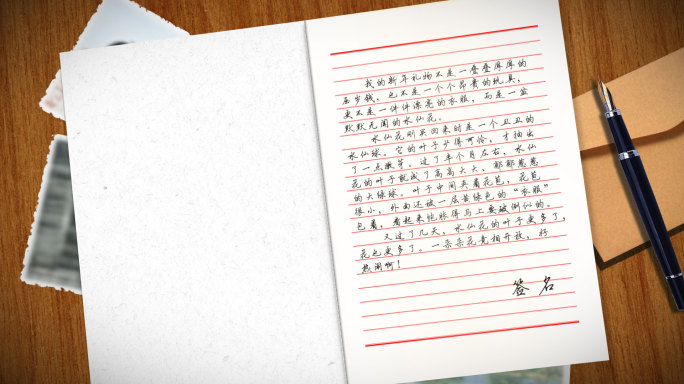 我的新年礼物不是一叠叠厚厚的
压岁钱，也不是一个个昂贵的玩具，
更不是一件件漂亮的衣服，而是一盆
默默无闻的水仙花。
水仙花刚买回来时是一个丑丑的
水仙球。它的叶子少得可怜，才抽出
了一点嫩芽。过了半个月左右，水仙
花的叶子就成了高高大大、郁郁葱葱
的大绿球。叶子中间夹着花苞，花苞
很小，外面还被一层黄绿色的“衣服”
包着，看起来饱胀得马上要破例似的。
又过了几天，水仙花的叶子更多了，
花也更多了。一朵朵花竞相开放，好
热闹啊！
签名